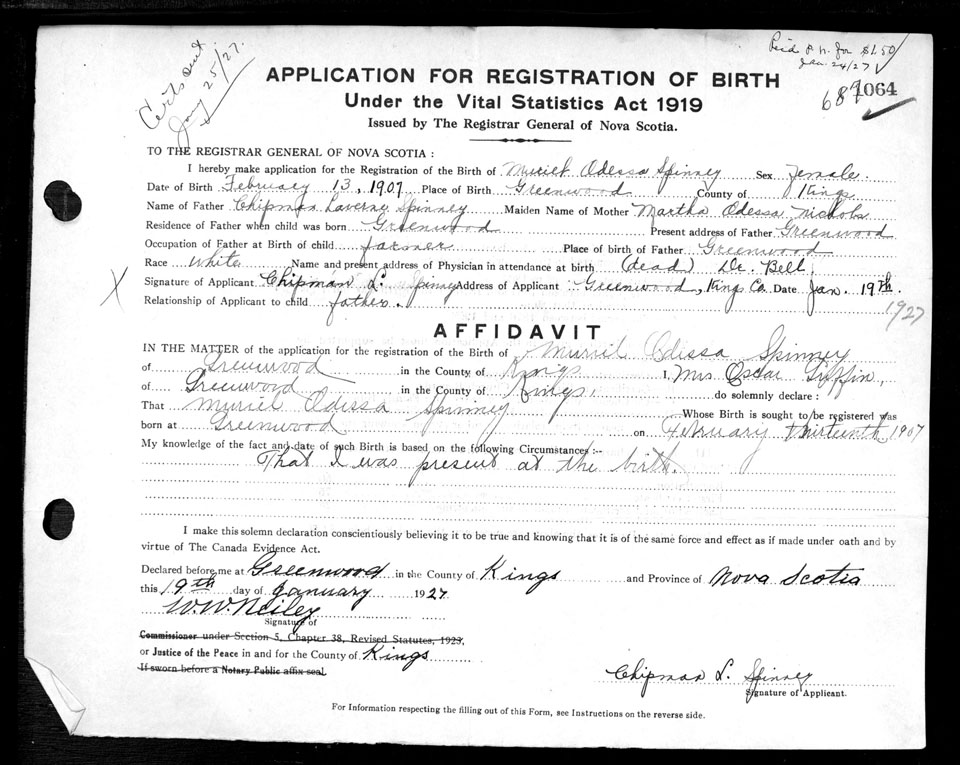 Certs sent
Jany 25/27.
Paid P. N. for $1.50
Jan. 24/27
APPLICATION FOR REGISTRATION OF BIRTH
Under the Vital Statistics Act 1919
687 1064
Issued by The Registrar General of Nova Scotia.
TO THE REGISTRAR GENERAL OF NOVA SCOTIA :
I hereby make application for the Registration of the Birth of Muriel Odessa Spinney Sex Female.
Date of Birth February 13, 1907 Place of Birth Greenwood County of Kings
Name of Father Chipman Laverne Spinney Maiden Name of Mother Martha Odessa Nichols
Residence of Father when child was born Greenwood Present address of Father Greenwood
Occupation of Father at Birth of child farmer Place of birth of Father Greenwood
Race White Name and present address of Physician in attendance at birth (dead) Dr. Bell.
X Signature of Applicant Chipman L. Spinney Address of Applicant Greenwood, Kings Co. Date Jan. 19th.
1927
Relationship of Applicant to child father.
AFFIDAVIT
IN THE MATTER of the application for the registration of the Birth of Muriel Odessa Spinney
of Greenwood in the County of Kings I, Mrs Oscar Giffin,
of Greenwood in the County of Kings, do solemnly declare :
That Muriel Odessa Spinney Whose Birth is sought to be registered was
born at Greenwood on February thirteenth 1907
My knowledge of the fact and date of such Birth is based on the following Circumstances :--
That I was present at the birth.
I make this solemn declaration conscientiously believing it to be true and knowing that it is of the same force and effect as if made under oath and by
virtue of The Canada Evidence Act.
Declared before me at Greenwood in the County of Kings and Province of Nova Scotia
this 19th day of January 1927
W. W. Neiley
Signature of
Commissioner under Section 5, Chapter 38, Revised Statutes, 1923,
or Justice of the Peace in and for the County of Kings
If sworn before a Notary Public affix seal.
Chipman L. Spinney
Signature of Applicant.
For Information respecting the filling out of this Form, see Instructions on the reverse side.